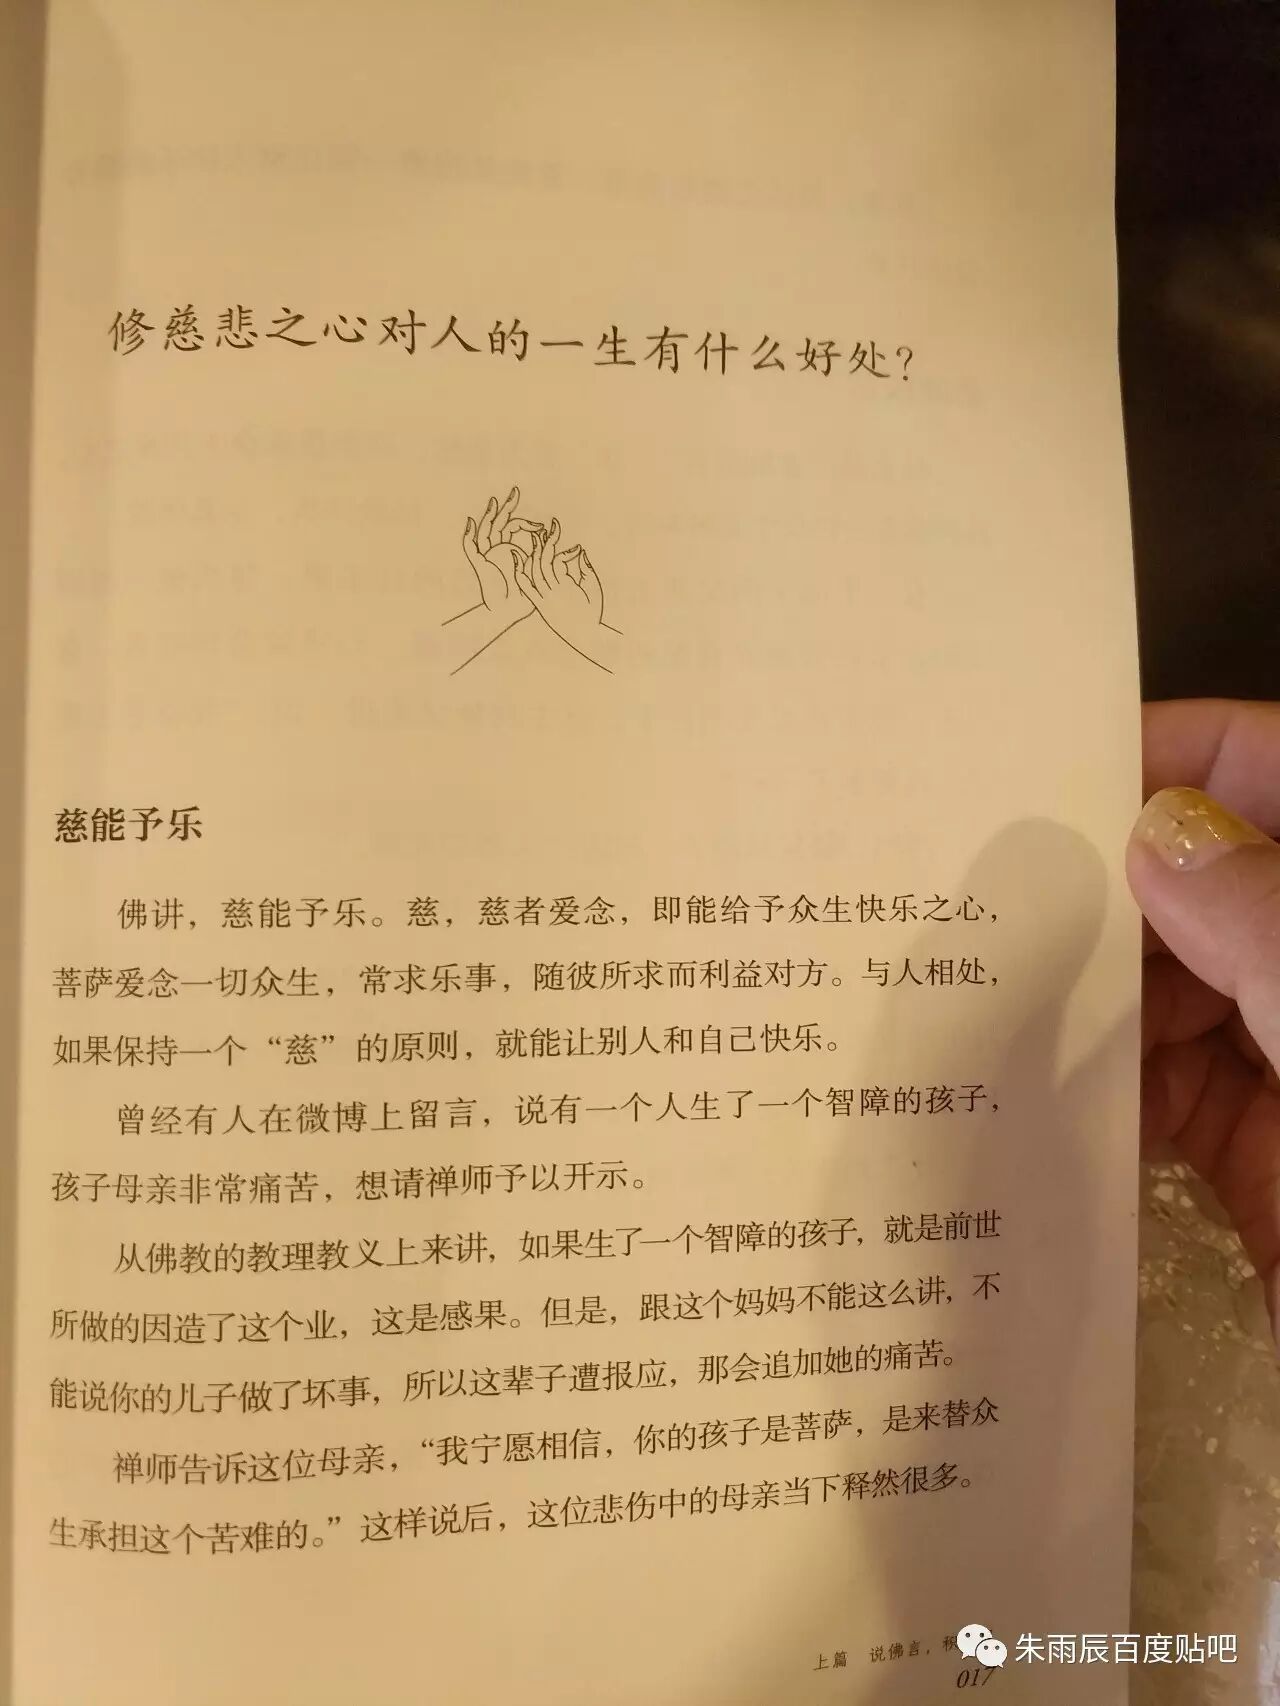 修慈悲之心对人的一生有什么好处？
慈能予乐
佛讲，慈能予乐。慈，慈者爱念，即能给予众生快乐之心，
菩萨爱念一切众生，常求乐事，随彼所求而利益对方。与人相处，
如果保持一个“慈”的原则，就能让别人和自己快乐。
曾经有人在微博上留言，说有一个人生了一个智障的孩子，
孩子母亲非常痛苦，想请禅师予以开示。
从佛教的教理教义上来讲，如果生了一个智障的孩子，就是前世
所做的因造了这个业，这是感果。但是，跟这个妈妈不能这么讲，不
能说你的儿子做了坏事，所以这辈子遭报应，那会追加她的痛苦。
禅师告诉这位母亲，“我宁愿相信，你的孩子是菩萨，是来替众
生承担这个苦难的。”这样说后，这位悲伤中的母亲当下释然很多。
上篇 说佛言，积
017
朱雨辰百度贴吧